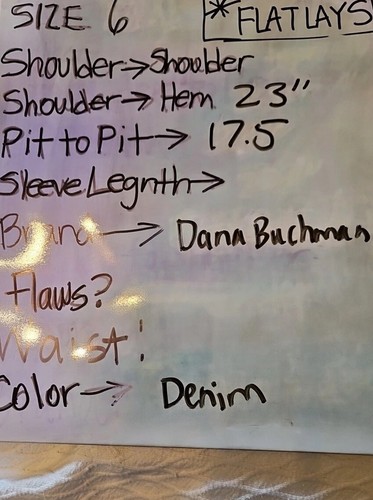 SIZE 6
* FLATLAYS
Shoulder→Shoulder
Shoulder→Hem 23"
Pit to Pit→ 17.5
Sleeve Legnth→
Brand → Dana Buchman
Flaws?
Waist:
Color→ Denim